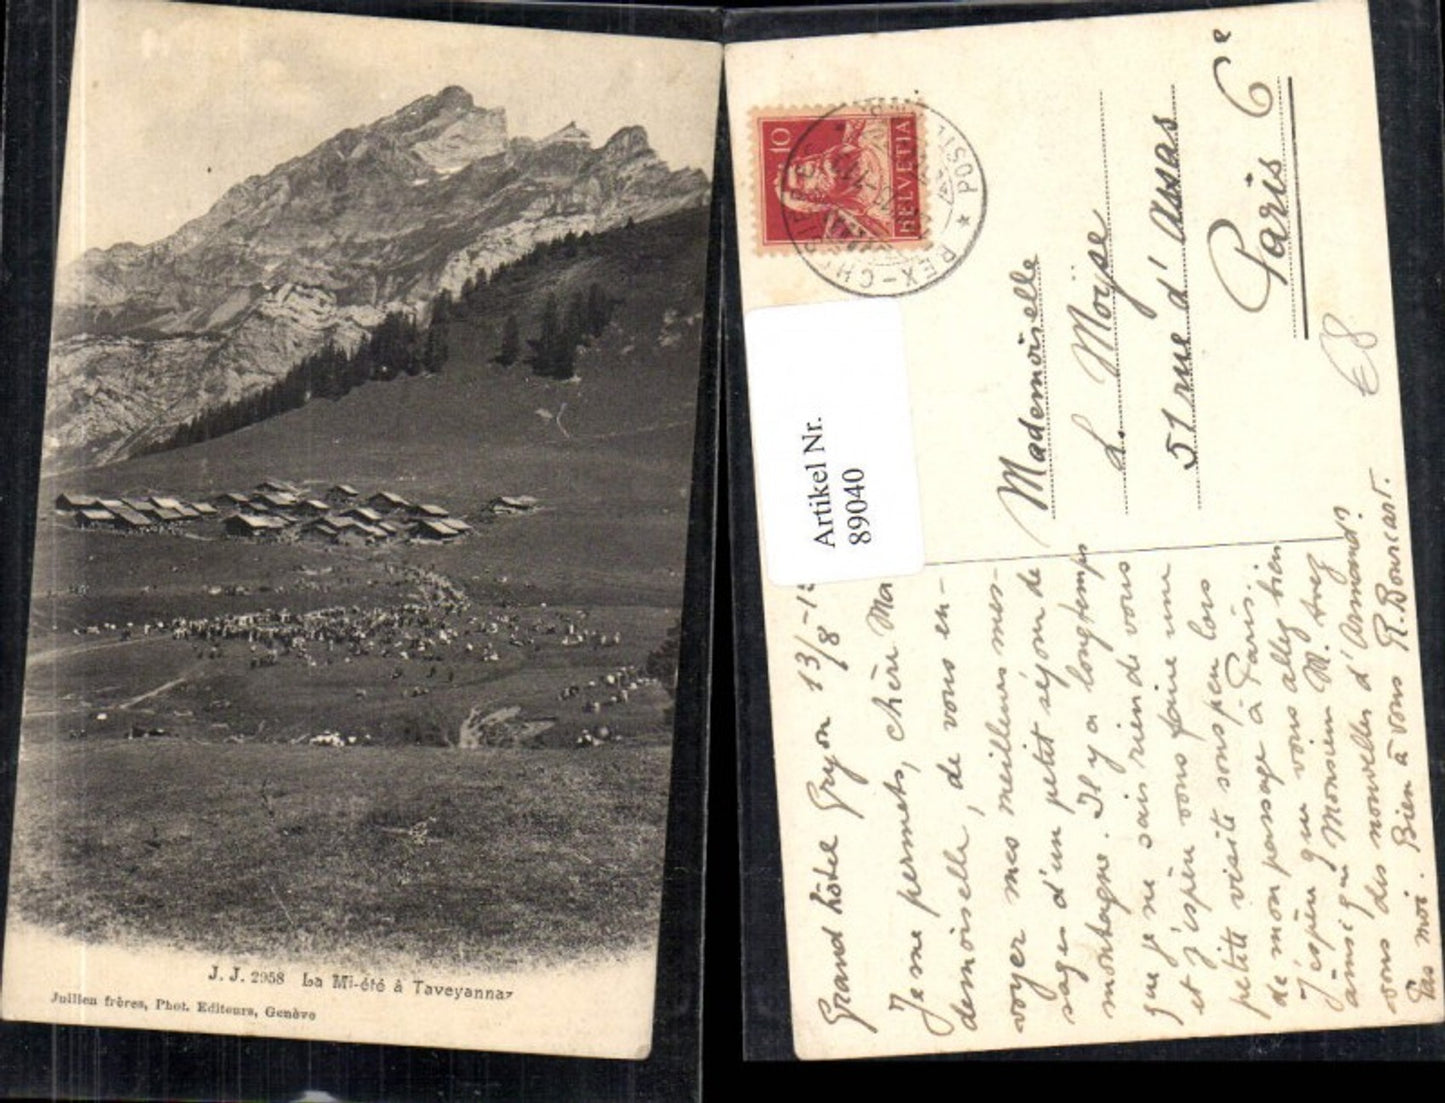 J. J. 2958 La Mi-été à Taveyannaz
Jullien frères, Phot. Editeurs, Genève
10
HELVETIA
POSTL
BEX-CH
Artikel Nr.
89040
Mademoiselle
L. Moÿse
51 rue d'Assas
Paris 6e
€8
Grand hôtel Gryon 13/8-1
Je me permets, chère Ma
demoiselle, de vous en-
voyer mes meilleures mes-
sages d'un petit séjour de
montagne. Il y a longtemps
que je ne sais rien de vous
et j'espère vous faire une
petite visite sous peu lors
de mon passage à Paris.
J'espère que vous allez bien
ainsi que Monsieur M. Avez
vous des nouvelles d'Armand?
Pas moi. Bien à vous R. Bourcart.